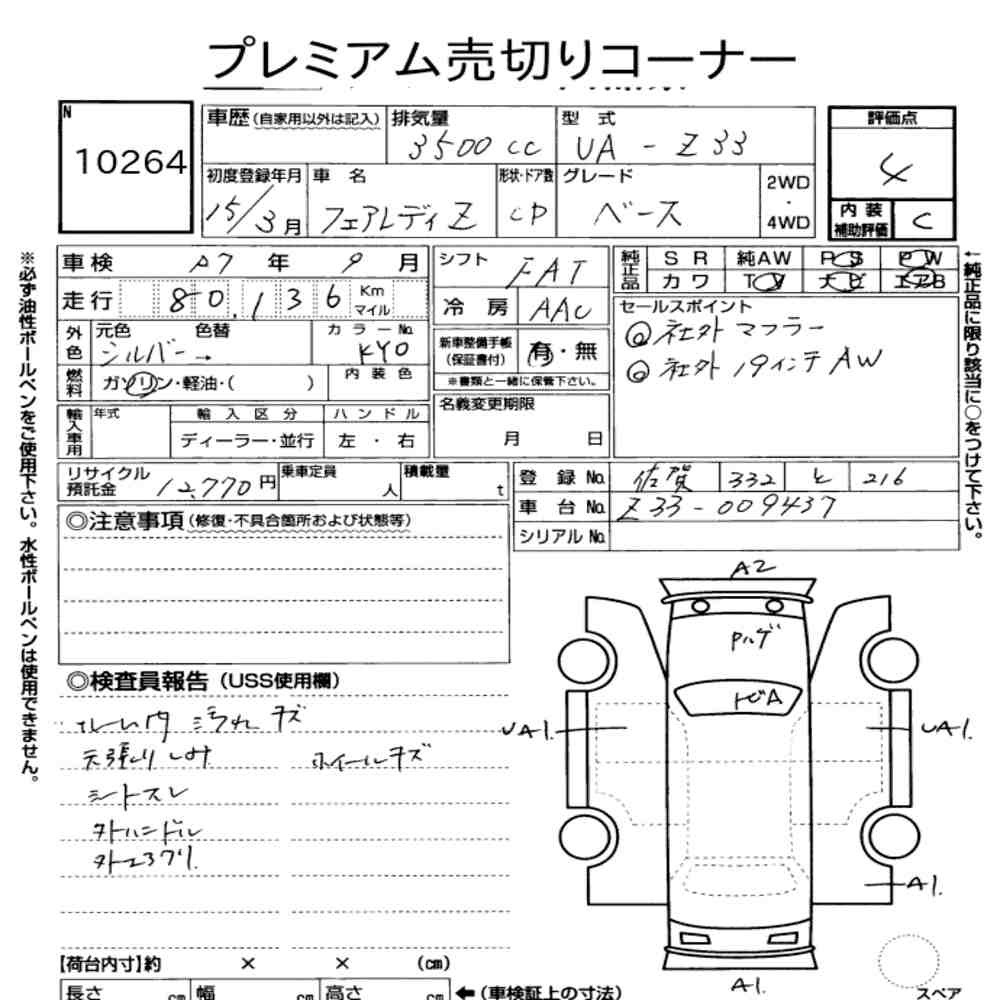 プレミアム売切りコーナー
N
10264
車歴(自家用以外は記入)
排気量
3500 cc
型 式
UA - Z33
評価点
4
初度登録年月
15/3月
車 名
フェアレディ Z
形状・ドア数
CP
グレード
ベース
2WD
・
4WD
内 装
補助評価
C
車検
R7 年 9 月
走行
80,136
Km
マイル
外色
元色
シルバー→
色替
カ ラ ー No.
KY0
燃料
ガソリン・軽油・( )
内 装 色
輸入車用
年式
輸 入 区 分
ディーラー・並行
ハ ン ド ル
左 ・ 右
シフト
FAT
冷 房
AAC
新車整備手帳
(保証書付)
有・無
※書類と一緒に保管下さい。
名義変更期限
月 日
純正品
S R
純AW
P S
P W
カ ワ
T V
ナ ビ
エアB
セールスポイント
◎ 社外 マフラー
◎ 社外 19インチ AW
リサイクル
預託金
12,770 円
乗車定員
人
積載量
t
登 録 No.
佐賀 332 と 216
車 台 No.
Z33-009437
シリアル No.
◎注意事項(修復・不具合箇所および状態等)
◎検査員報告(USS使用欄)
汚れ キズ
天張り しみ
ホイールキズ
シートスレ
外ハンドル
※必ず油性ボールペンをご使用下さい。水性ボールペンは使用できません。
←純正品に限り該当に○をつけて下さい。
A2
Pハゲ
トビA
UA1.
UA1.
A1.
A1.
スペア
【荷台内寸】約 × × (cm)
長さ cm
幅 cm
高さ cm
←(車検証上の寸法)